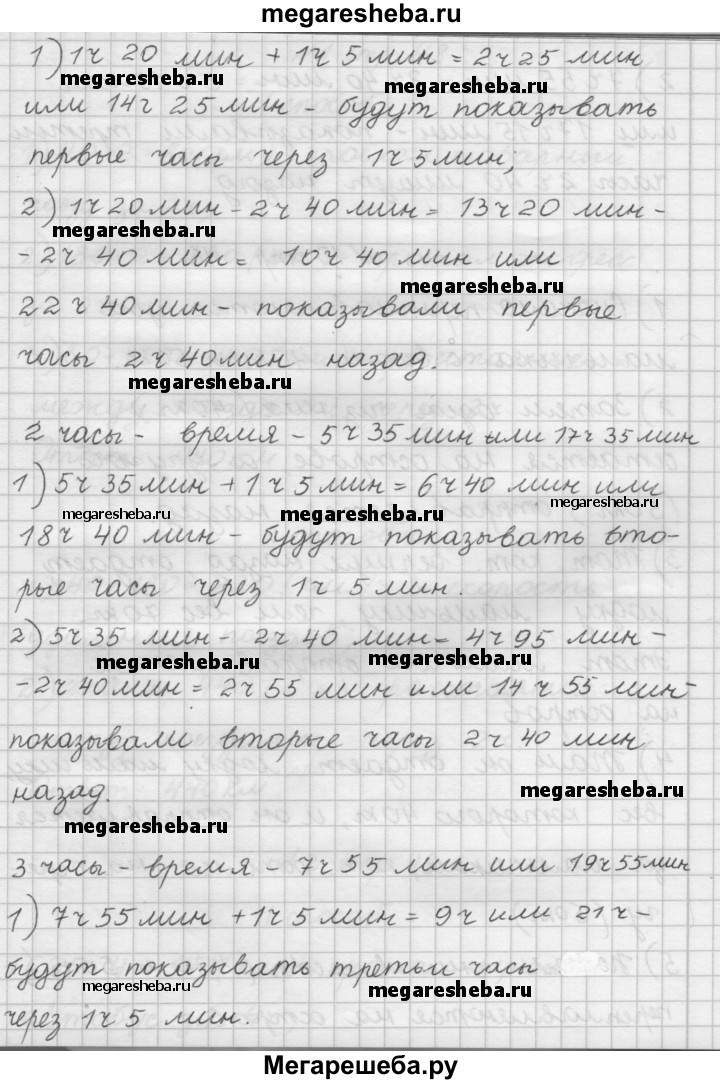 megaresheba.ru
1) 1ч 20 мин + 1ч 5 мин = 2ч 25 мин
megaresheba.ru megaresheba.ru
или 14ч 25 мин - будут показывать
первые часы через 1ч 5мин;
2) 1ч 20 мин - 2ч 40 мин = 13ч 20 мин -
megaresheba.ru
- 2ч 40 мин = 10ч 40 мин или
megaresheba.ru
22ч 40 мин - показывали первые
часы 2ч 40мин назад.
megaresheba.ru
2 часы - время - 5ч 35 мин или 17ч 35 мин
1) 5ч 35 мин + 1ч 5 мин = 6ч 40 мин или
megaresheba.ru megaresheba.ru megaresheba.ru
18ч 40 мин - будут показывать вто-
рые часы через 1ч 5 мин.
2) 5ч 35 мин - 2ч 40 мин = 4ч 95 мин -
megaresheba.ru megaresheba.ru
- 2ч 40 мин = 2ч 55 мин или 14ч 55 мин -
показывали вторые часы 2ч 40 мин
назад.
megaresheba.ru
3 часы - время - 7ч 55 мин или 19ч 55мин
1) 7ч 55 мин + 1ч 5 мин = 9ч или 21ч -
будут показывать третьи часы
megaresheba.ru megaresheba.ru
через 1ч 5 мин.
Мегарешеба.ру